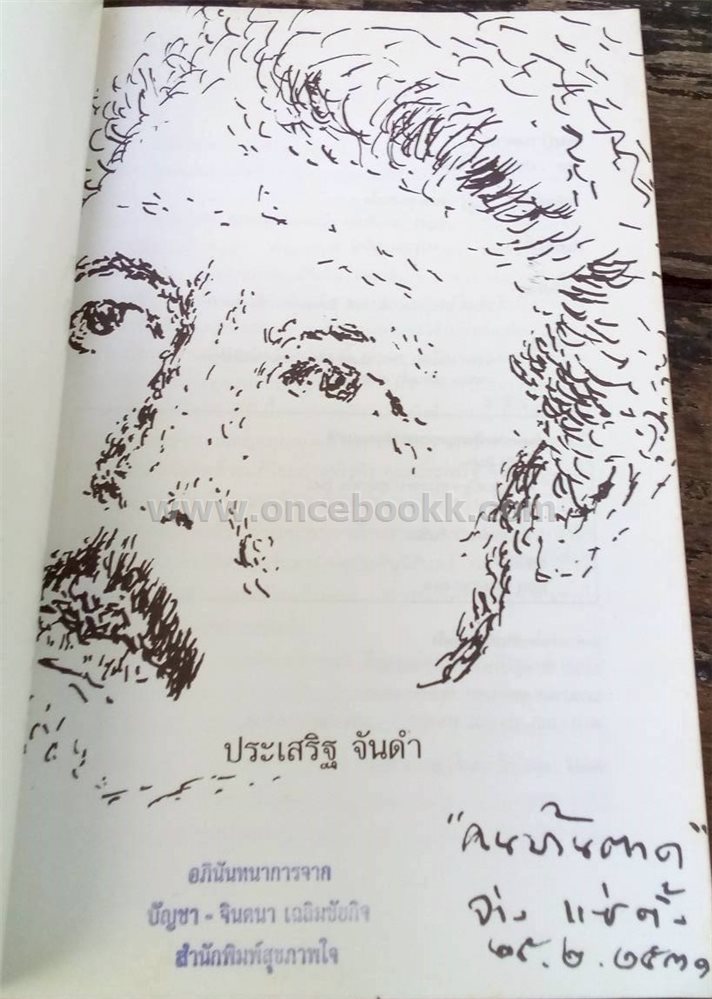 www.oncebookk.com
ประเสริฐ จันดำ
"คนบ้านตาด"
จ่าง แซ่ตั้ง
๒๕.๒.๒๕๓๑
อภินันทนาการจาก
บัญชา - จินตนา เฉลิมชัยกิจ
สำนักพิมพ์สุขภาพใจ